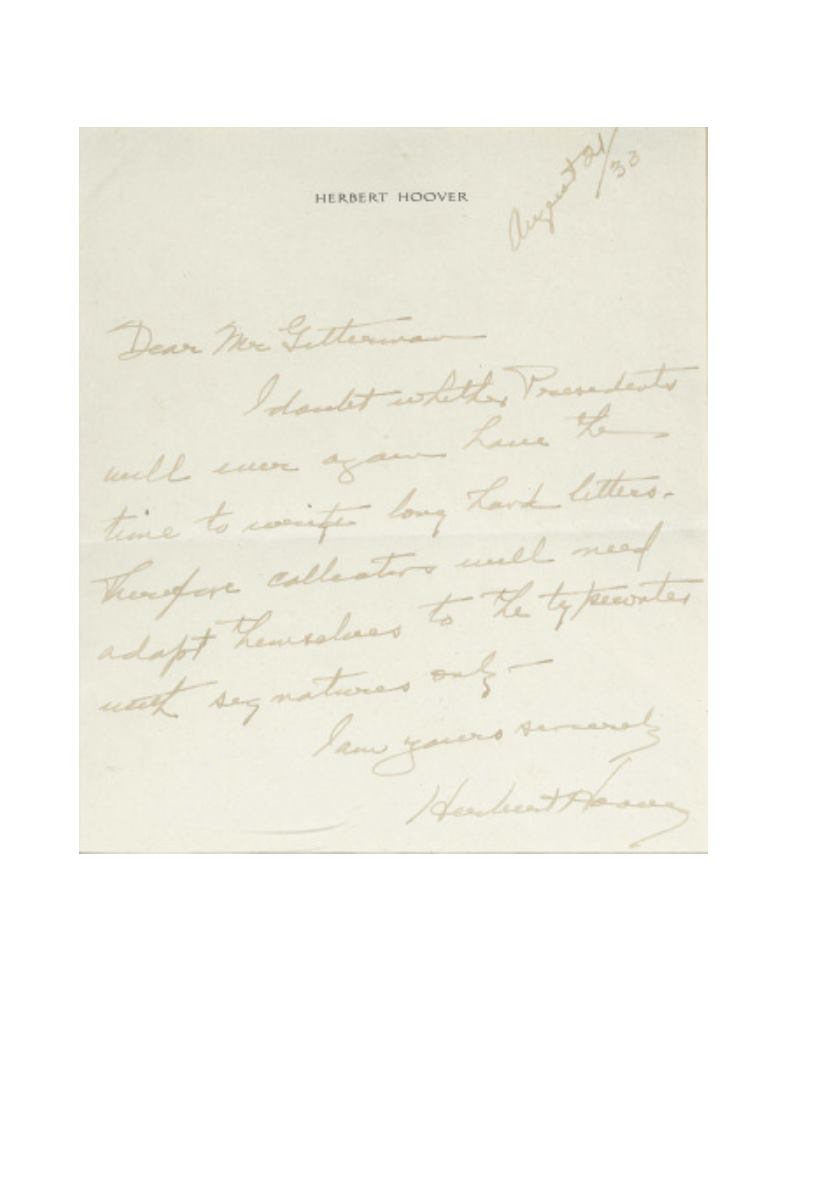 August 21/33
HERBERT HOOVER
Dear Mr Gitterman
I doubt whether Presidents
will ever again have the
time to write long hand letters.
Therefore collectors will need
adapt themselves to the typewriter
with signatures only—
I am yours sincerely
Herbert Hoover